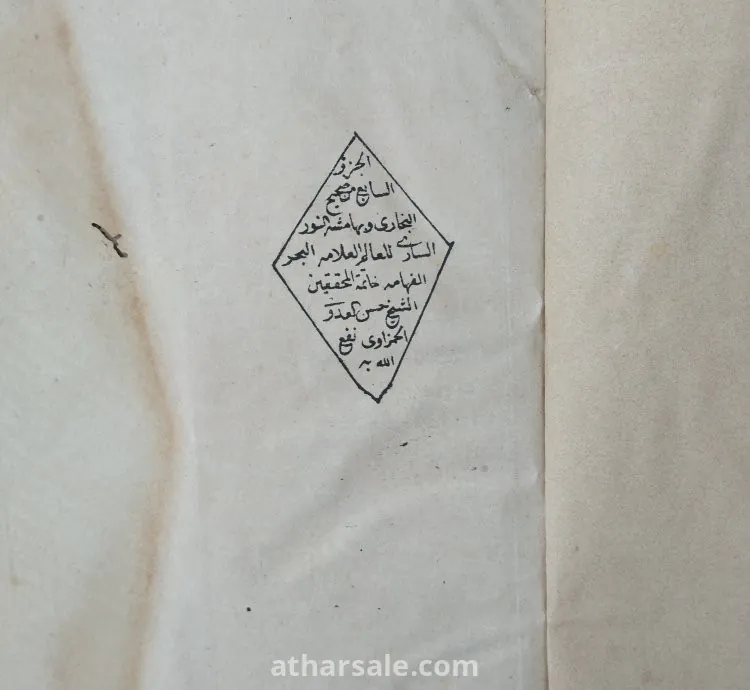 الجزؤ
السابع من صحيح
البخارى وبهامشه النور
السارى للعالم العلامه البحر
الفهامه خاتمة المحققين
الشيخ حسن العدوى
الحمزاوى نفع
الله به
atharsale.com